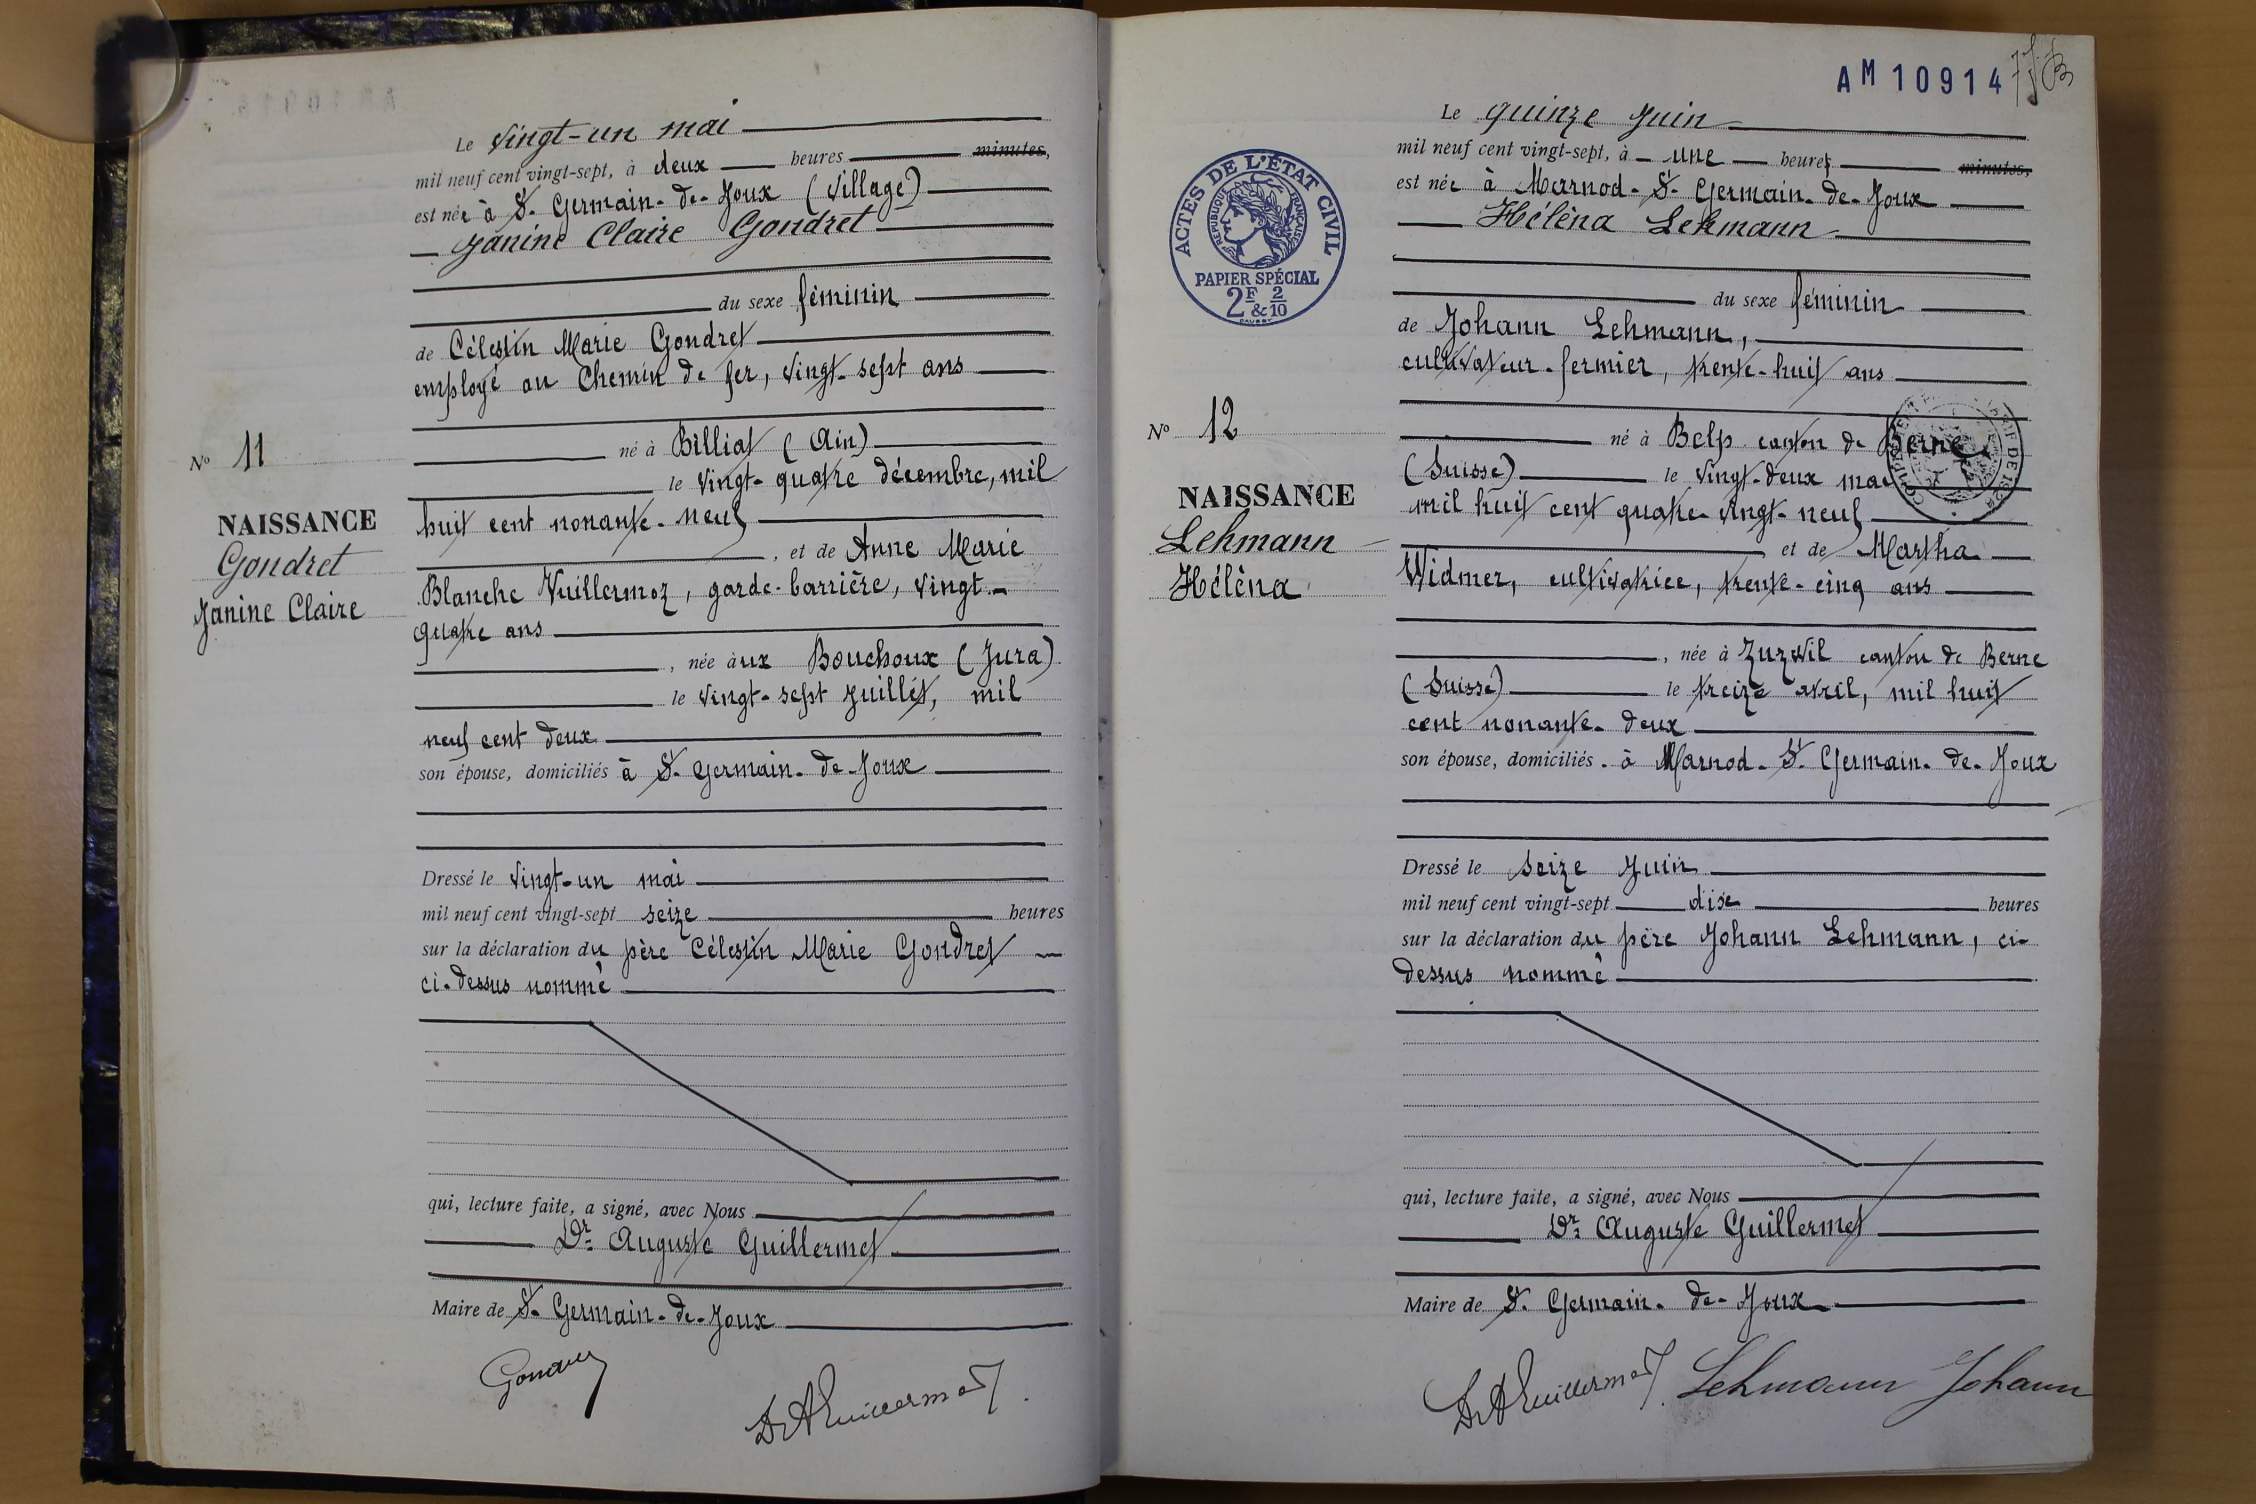 Le vingt-un mai
mil neuf cent vingt-sept, à deux heures minutes,
est née à St-Germain-de-Joux (village)
Janine Claire Gondret
du sexe féminin
de Célestin Marie Gondret
employé au Chemin de fer, vingt-sept ans
né à Billiat (Ain)
le vingt-quatre décembre, mil
huit cent nonante-neuf
, et de Anne Marie
Blanche Vuillermoz, garde-barrière, vingt-
quatre ans
, née aux Bouchoux (Jura)
le vingt-sept juillet, mil
neuf cent deux
son épouse, domiciliés à St-Germain-de-Joux
Dressé le vingt-un mai
mil neuf cent vingt-sept seize heures
sur la déclaration du père Célestin Marie Gondret
ci-dessus nommé
qui, lecture faite, a signé, avec Nous
Dr Auguste Guillermet
Maire de St-Germain-de-Joux
DrAGuillermet
No 11
NAISSANCE
Gondret
Janine Claire
AM 10914
Le quinze juin
mil neuf cent vingt-sept, à une heures minutes,
est née à Marnod-St-Germain-de-Joux
Hélèna Lehmann
du sexe féminin
de Johann Lehmann,
cultivateur-fermier, trente-huit ans
né à Belp canton de Berne
(Suisse) le vingt-deux mai
mil huit cent quatre-vingt-neuf
et de Martha
Widmer, cultivatrice, trente-cinq ans
, née à Zuzwil canton de Berne
(Suisse) le treize avril, mil huit
cent nonante-deux
son épouse, domiciliés à Marnod-St-Germain-de-Joux
Dressé le seize juin
mil neuf cent vingt-sept dise heures
sur la déclaration du père Johann Lehmann, ci-
dessus nommé
qui, lecture faite, a signé, avec Nous
Dr Auguste Guillermet
Maire de St-Germain-de-Joux
DrAGuillermet Lehmann Johann
ACTES DE L'ÉTAT CIVIL
RÉPUBLIQUE FRANÇAISE
PAPIER SPÉCIAL
2F & 2/10
No 12
NAISSANCE
Lehmann
Hélèna
DE 1924